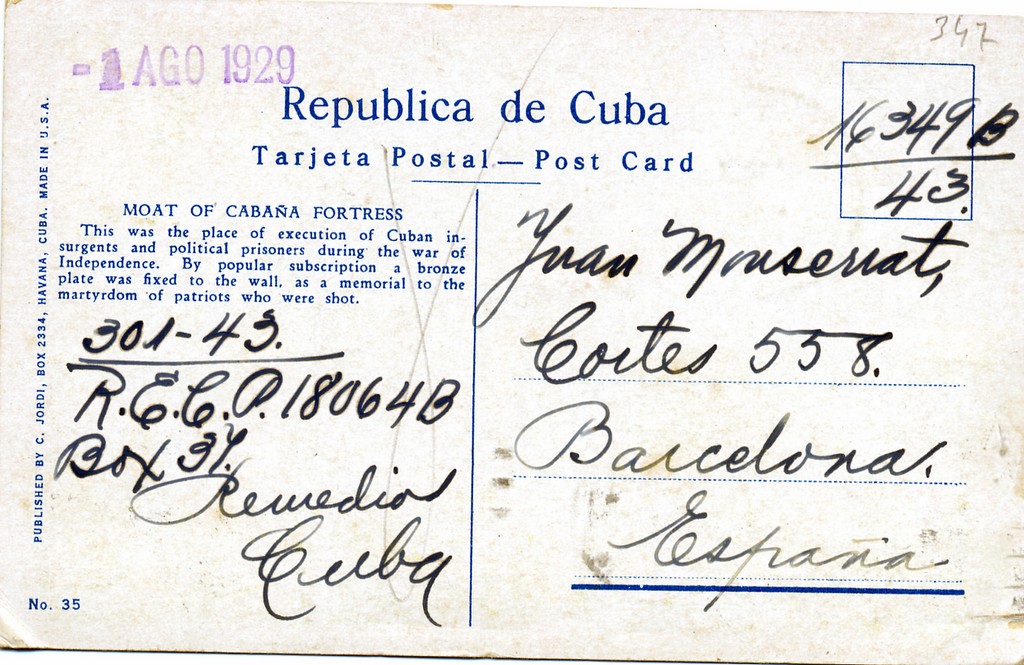 347
-1 AGO 1929
Republica de Cuba
Tarjeta Postal — Post Card
16349 B
43.
MOAT OF CABAÑA FORTRESS
This was the place of execution of Cuban in-
surgents and political prisoners during the war of
Independence. By popular subscription a bronze
plate was fixed to the wall, as a memorial to the
martyrdom of patriots who were shot.
301-43.
R.E.C.P. 18064B
Box 37.
Remedios
Cuba
Juan Monserrat,
Cortes 558.
Barcelona.
España
PUBLISHED BY C. JORDI, BOX 2334, HAVANA, CUBA. MADE IN U.S.A.
No. 35